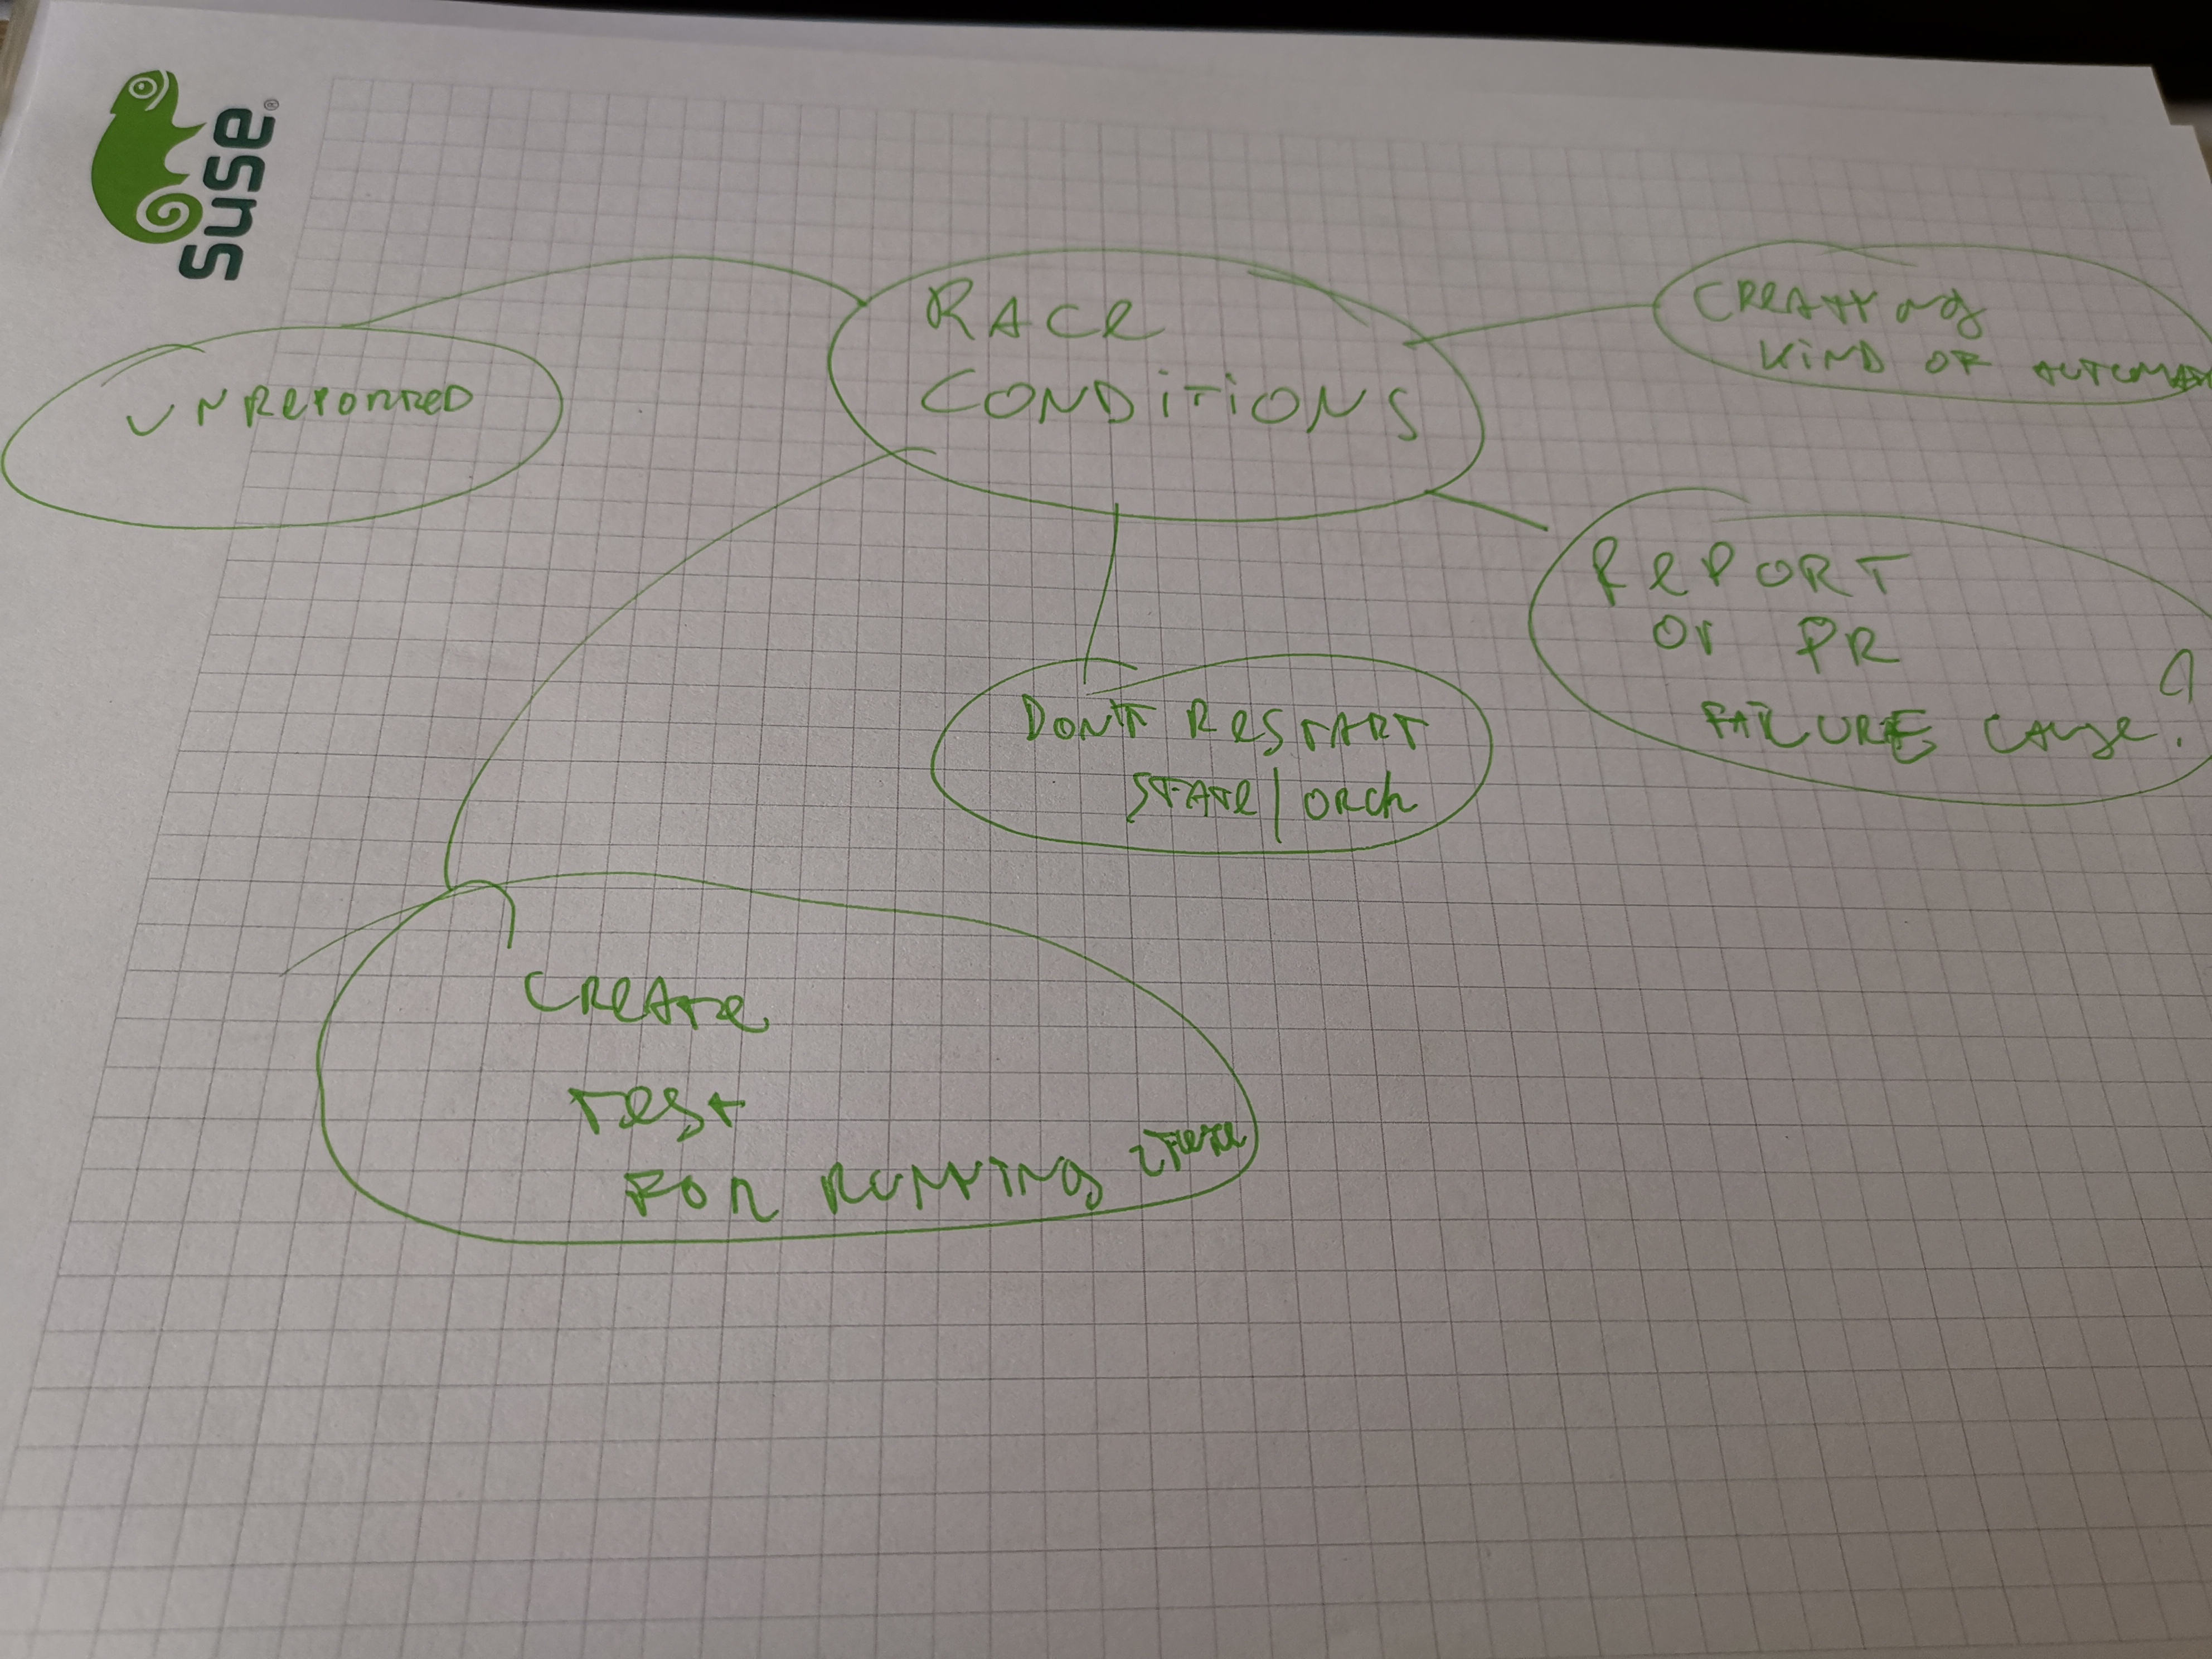 SUSE
RACE
CONDITIONS
UNREPORTED
CREATING
KIND OF
REPORT
OF PR
FAILURE CAUSE?
DON'T RESTART
STATE/ORCH
CREATE
TEST
FOR RUNNING